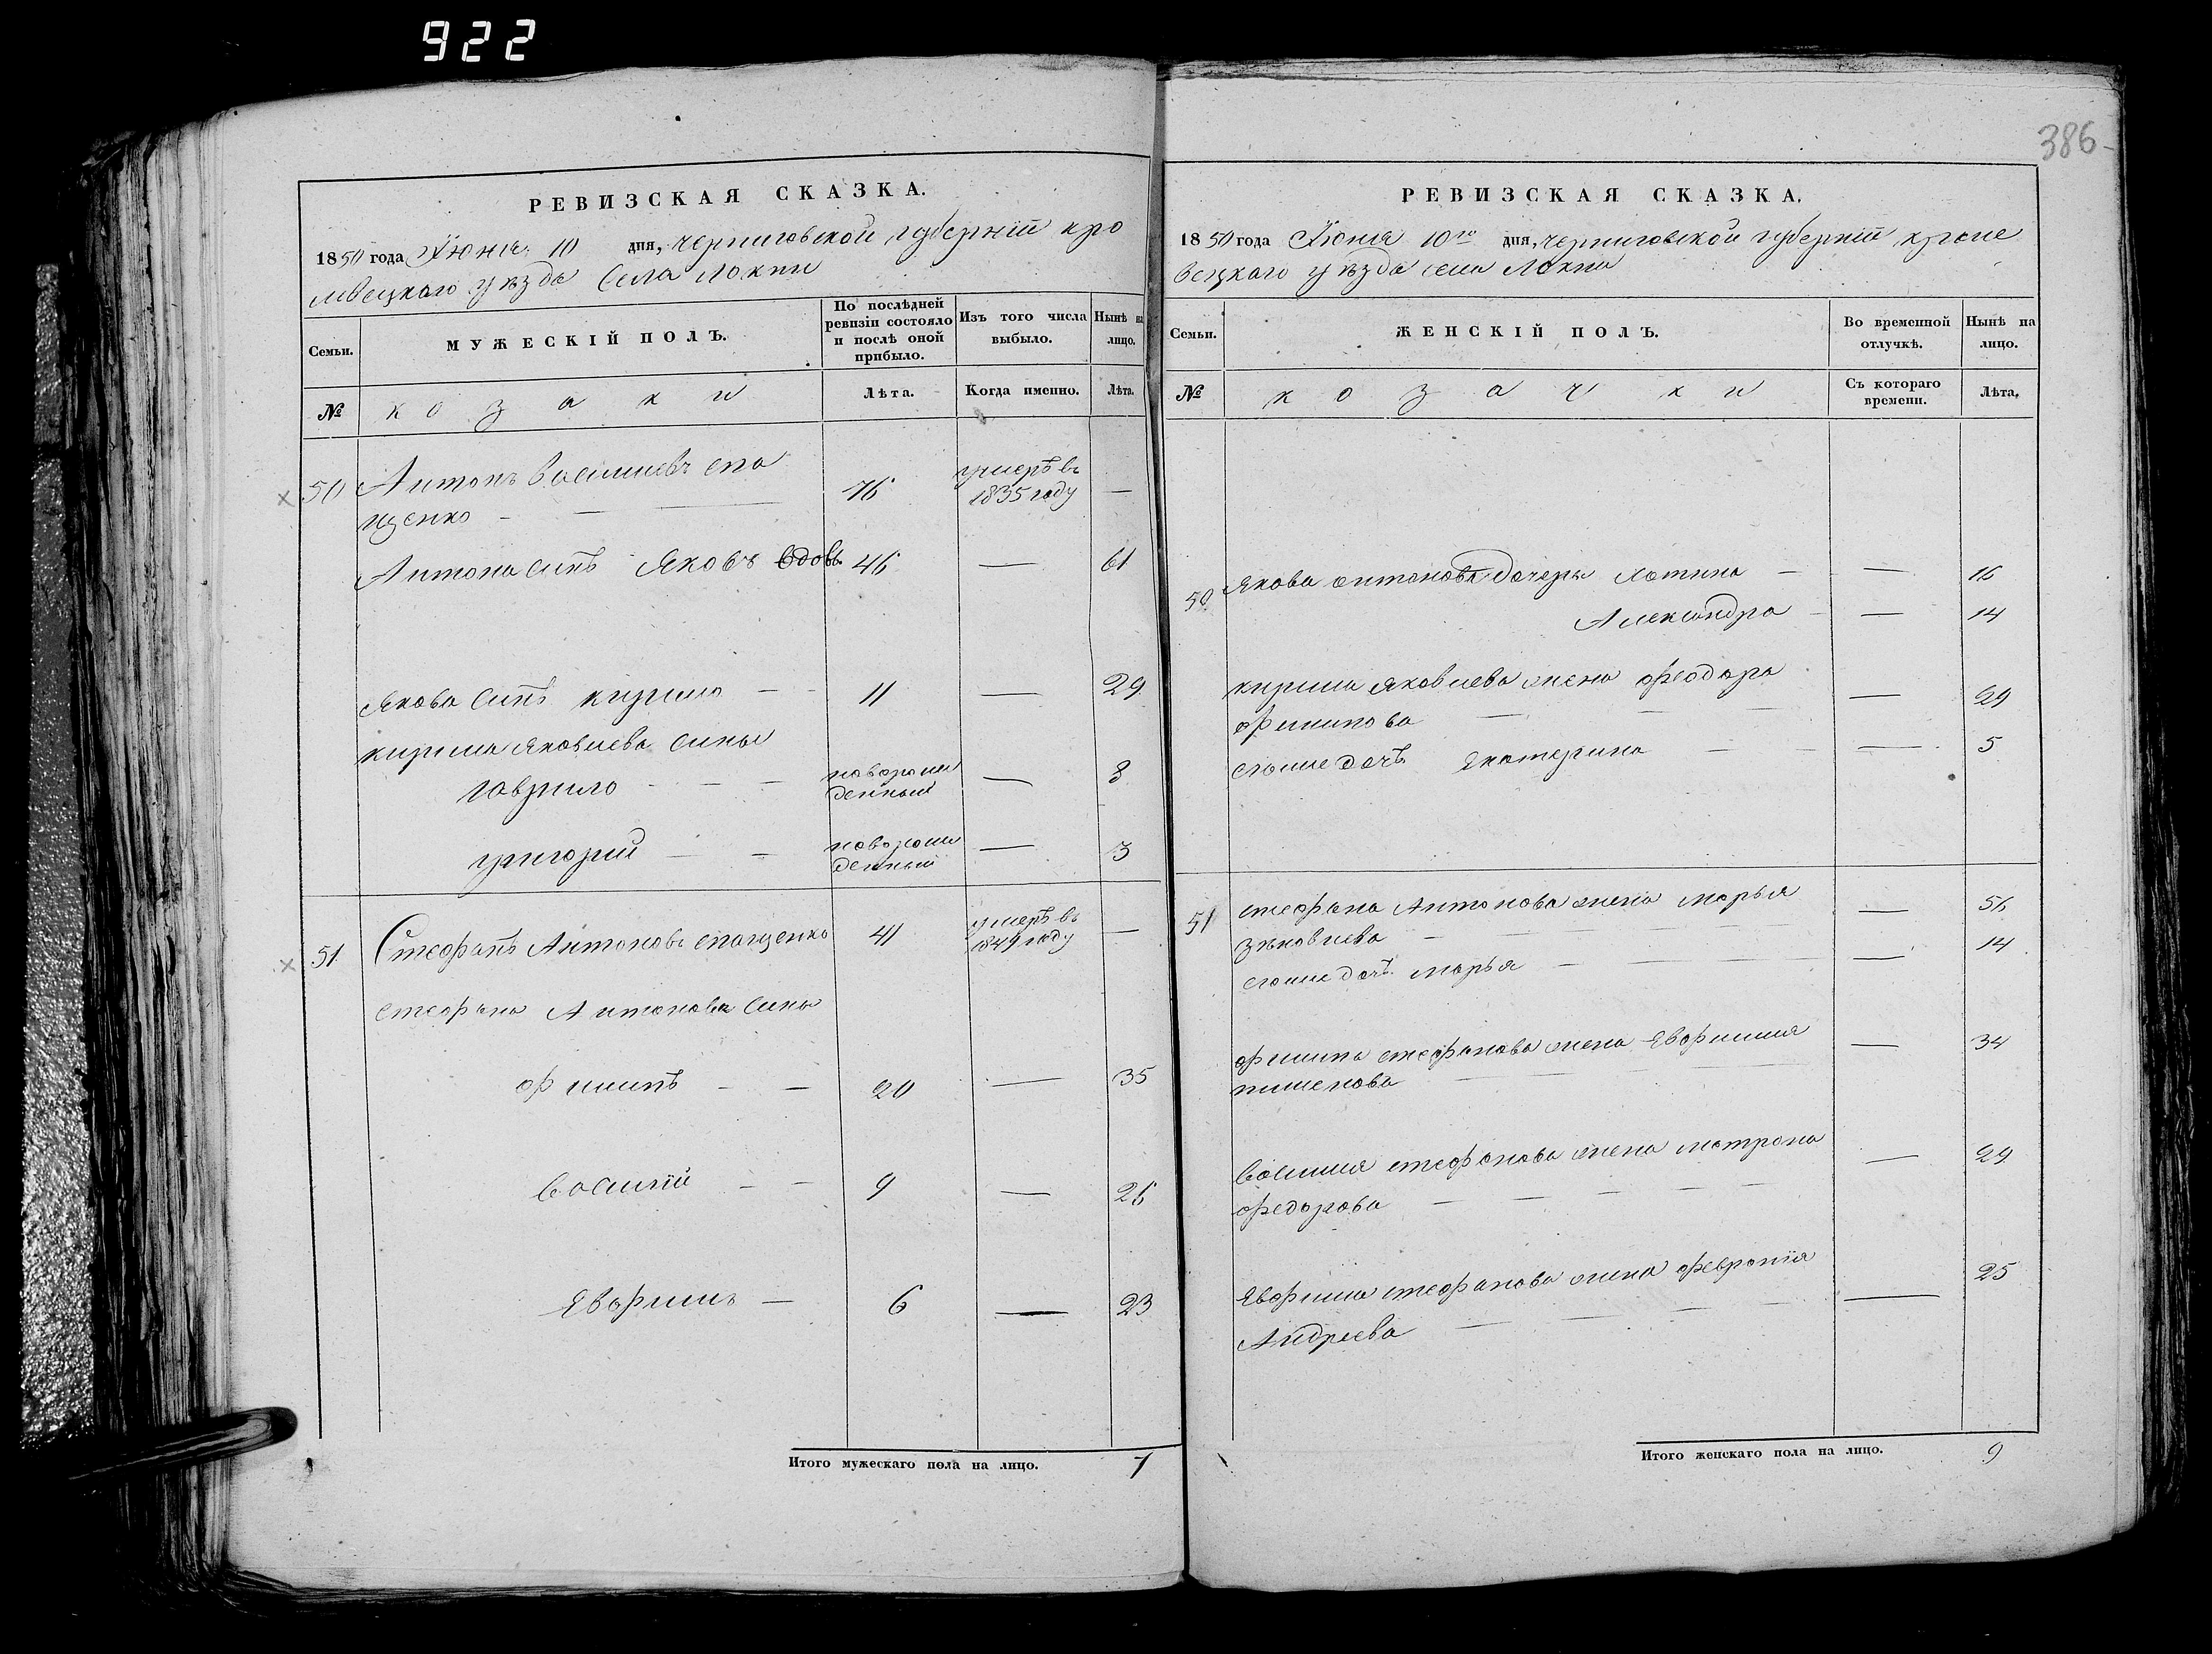 922
386
РЕВИЗСКАЯ СКАЗКА.
1850 года Іюня 10 дня, черниговской губерніи кро
левецкаго уѣзда Села Локни
Семьи.
МУЖЕСКІЙ ПОЛЪ.
По послѣдней ревизіи состояло и послѣ оной прибыло.
Изъ того числа выбыло.
Нынѣ на лицо.
№
козаки
Лѣта.
Когда именно.
Лѣта.
50 Антонъ Василиевъ спа
щенко — — 76 умерѣ въ 1835 году —
Антона сынъ Яковъ вдовъ 46 — 61
Якова сынъ кирило — 11 — 29
кирила Яковлева сины
гаврило — — новорож
денный — 8
григорий — — новорож
денный — 3
51 Стефанъ Антоновъ спащенко 41 умерѣ въ 1849 году —
стефана Антонова сины
филипъ — — 20 — 35
Василій — — 9 — 26
Евфимъ — 6 — 23
Итого мужескаго пола на лицо. 7
РЕВИЗСКАЯ СКАЗКА.
1850 года Іюня 10го дня, черниговской губерніи кроле
вецкаго уѣзда села Локни
Семьи.
ЖЕНСКІЙ ПОЛЪ.
Во временной отлучкѣ.
Нынѣ на лицо.
№
козачки
Съ котораго времени.
Лѣта.
50 Якова антонова дочеры — — 16
Александра — — 14
кирила Яковлева жена феодора
филипова — — — — 29
егоже дочъ Екатерина — — — 5
51 стефана Антонова жена марья — 56
Яковлева — — — —
егоже дочъ марья — — — — 14
филипа стефанова жена Евфимия — 34
пименова — — —
Василия стефанова жена матрона — 29
федорова — — — — —
Евфима стефанова жена февронія — 25
Андреева — — — —
Итого женскаго пола на лицо. 9